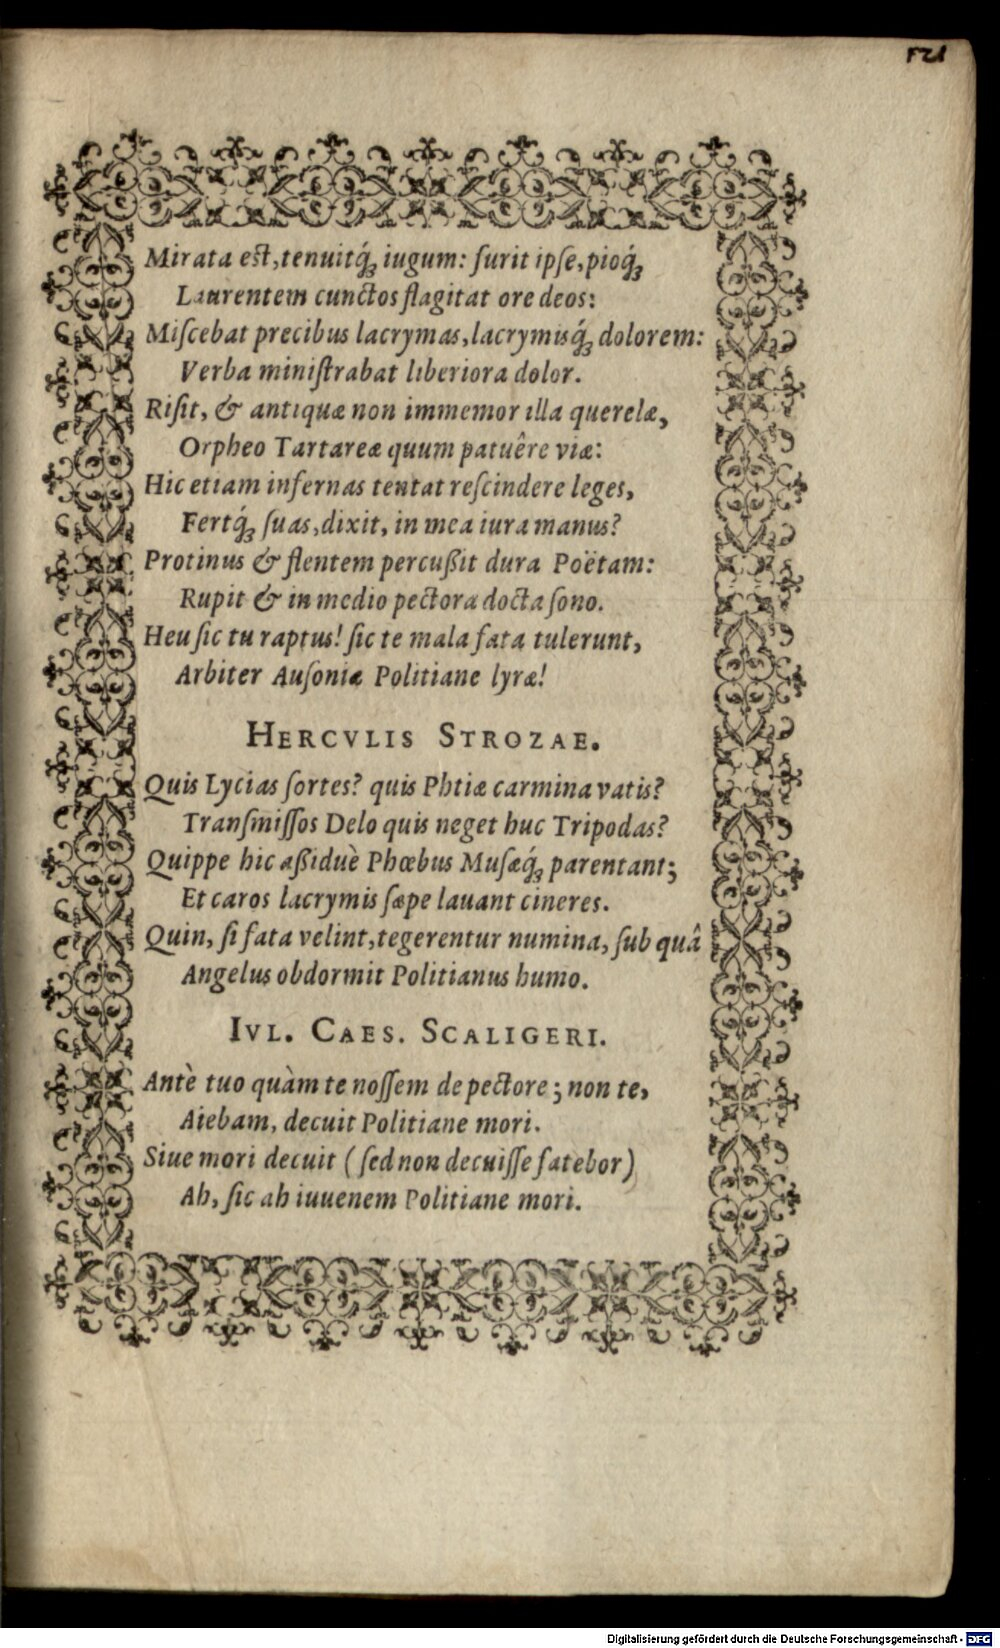 121
Mirata est, tenuitq́; iugum: furit ipse, pioq́;
Laurentem cunctos flagitat ore deos:
Miſcebat precibus lacrymas, lacrymisq́; dolorem:
Verba miniſtrabat liberiora dolor.
Riſit, & antiquæ non immemor illa querelæ,
Orpheo Tartareæ quum patuêre viæ:
Hic etiam infernas tentat reſcindere leges,
Fertq́; ſuas, dixit, in mea iura manus?
Protinus & flentem percuſsit dura Poëtam:
Rupit & in medio pectora docta ſono.
Heu ſic tu raptus! ſic te mala fata tulerunt,
Arbiter Auſoniæ Politiane lyræ!
HERCVLIS STROZAE.
Quis Lycias ſortes? quis Phtiæ carmina vatis?
Tranſmiſſos Delo quis neget huc Tripodas?
Quippe hic aſsiduè Phœbus Muſæq́; parentant;
Et caros lacrymis ſæpe lauant cineres.
Quin, ſi fata velint, tegerentur numina, ſub quâ
Angelus obdormit Politianus humo.
IVL. CAES. SCALIGERI.
Antè tuo quàm te noſſem de pectore; non te,
Aiebam, decuit Politiane mori.
Siue mori decuit (ſed non decuiſſe fatebor)
Ah, ſic ah iuuenem Politiane mori.
Digitalisierung gefördert durch die Deutsche Forschungsgemeinschaft - DFG